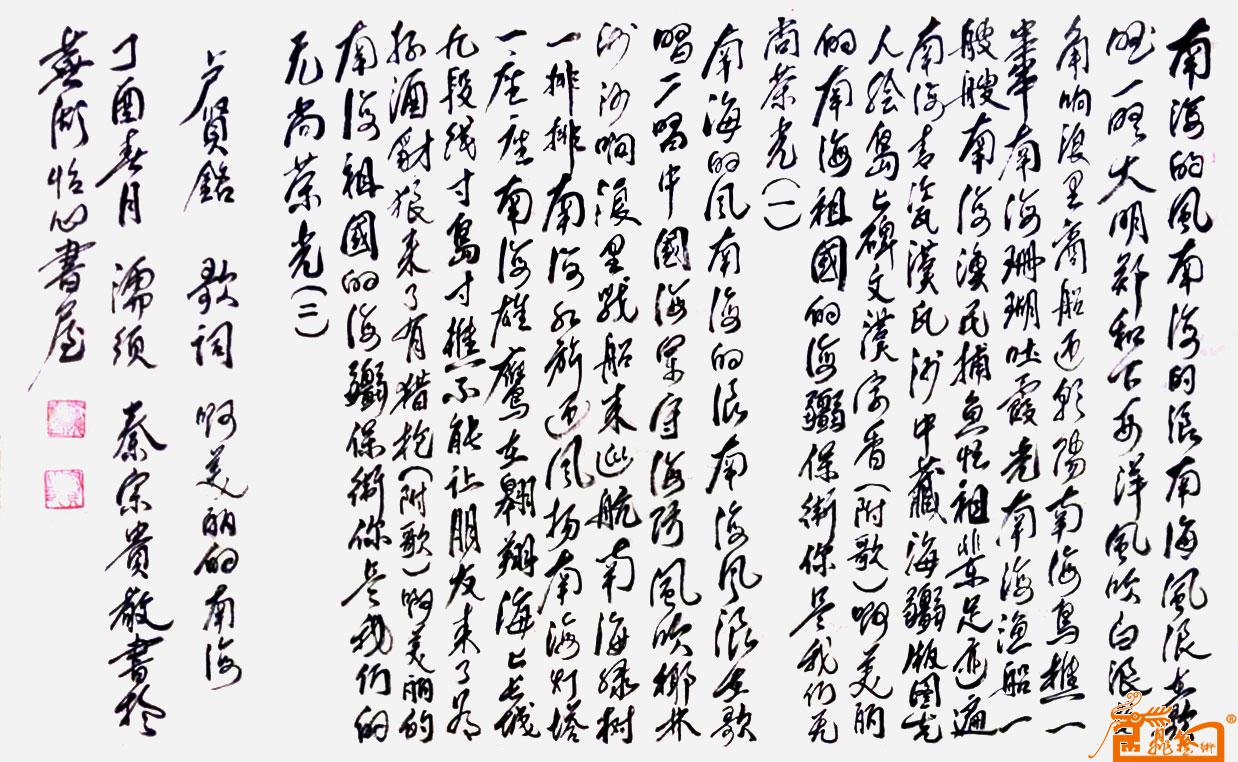 南海的风南海的浪南海风浪在歌
唱一唱大明郑和下西洋风吹白浪
角响浪里商船迎朝阳南海岛礁一
串串南海珊瑚吐霞光南海渔船一
艘艘南海渔民捕鱼忙祖辈足迹遍
南海青瓷瓦漠瓦沙中藏海疆版图先
人绘岛上碑文漢字香（附歌）啊美丽
的南海祖國的海疆保衛你是我们无
尚荣光（一）
南海的风南海的浪南海风浪在歌
唱一唱中國海军守海防風吹椰林
沙沙响浪里戰船来巡航南海绿树
一排排南海红旗迎风扬南海灯塔
一座座南海雄鹰在翱翔海上长城
九段线寸岛寸礁不能让朋友来了有
好酒豺狼来了有猎枪（附歌）啊美丽的
南海祖國的海疆保衛你是我们的
无尚荣光（二）
卢贤 歌词 啊美丽的南海
丁酉春月 濡须 秦宗贵敬書於
蕪湖怡心書屋